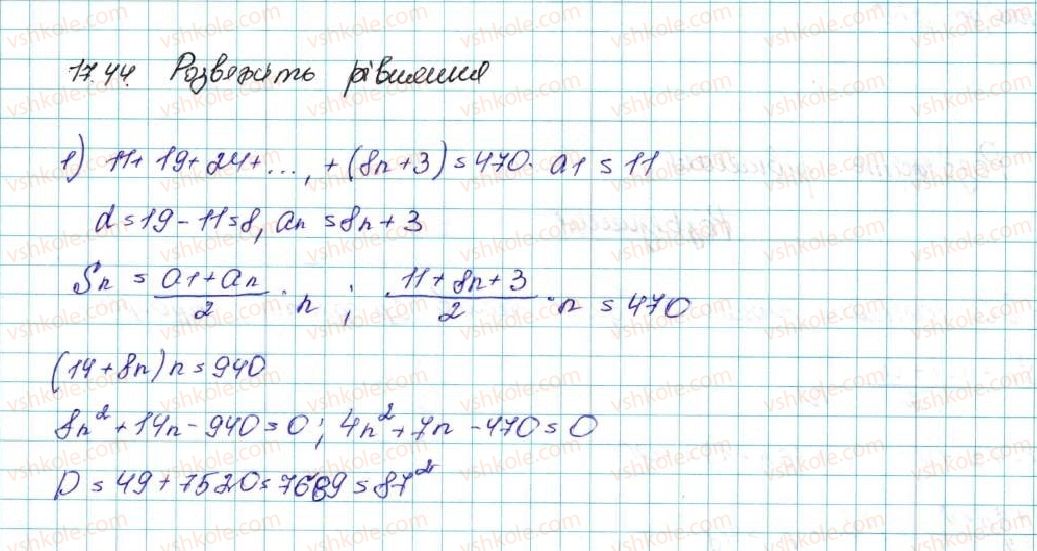 17.44. Розвяжіть рівняння
1) 11 + 19 + 24 + ..., + (8n + 3) = 470. a1 = 11
d = 19 - 11 = 8, an = 8n + 3
Sn = (a1 + an)/2 · n ; (11 + 8n + 3)/2 · n = 470
(14 + 8n) n = 940
8n² + 14n - 940 = 0 ; 4n² + 7n - 470 = 0
D = 49 + 7520 = 7689 = 87²